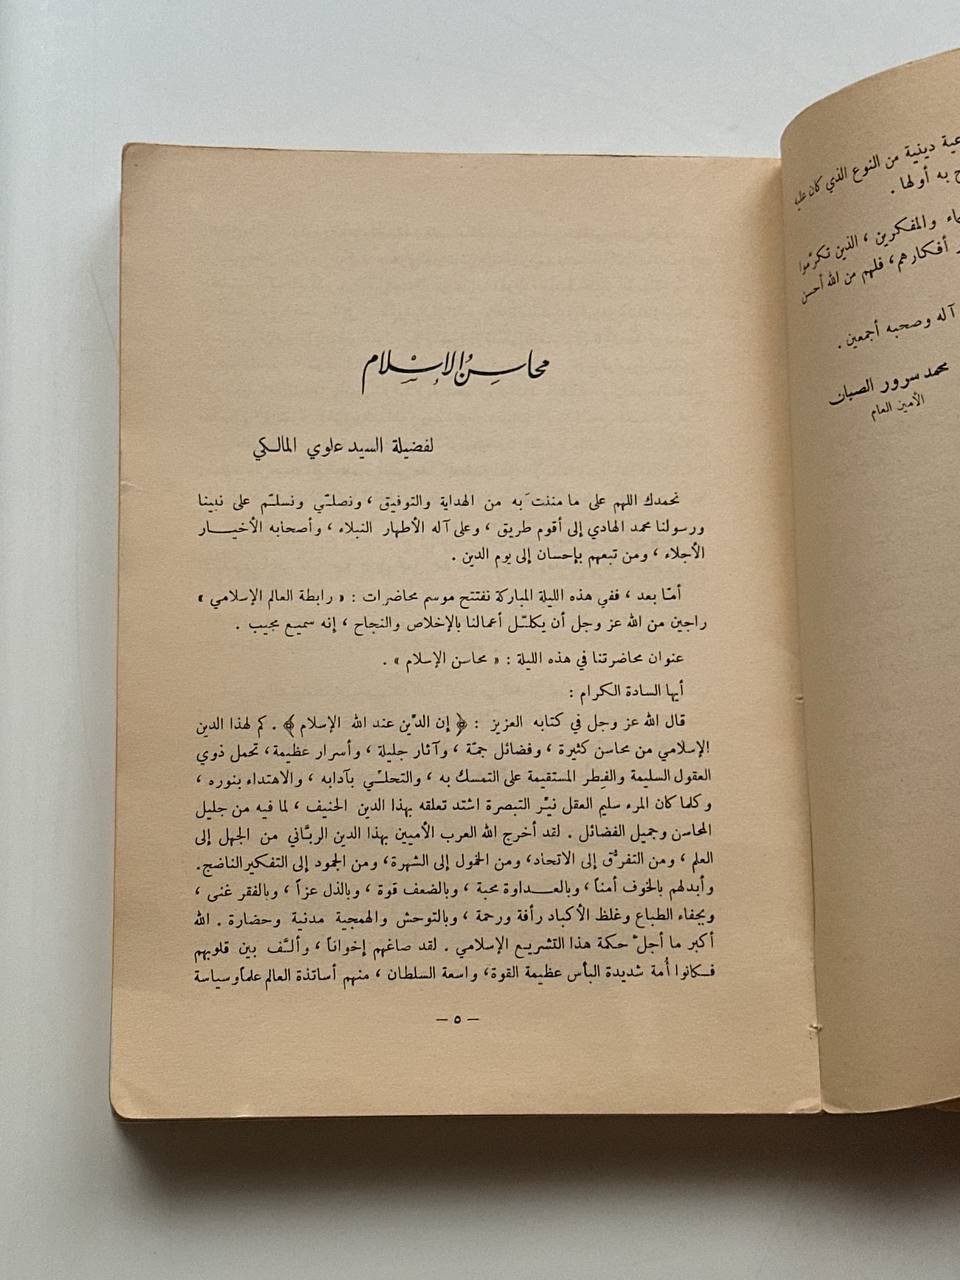 عية دينية من النوع الذي كان عليه
ج به أولها .
ماء والمفكرين ، الذين تكرّموا
أفكارهم ، فلهم من الله أحسن
آله وصحبه أجمعين .
محمد سرور الصبان
الأمين العام
محاسن الإسلام
لفضيلة السيد علوي المالكي
نحمدك اللهم على ما مننتَ به من الهداية والتوفيق ، ونصلّي ونسلّم على نبينا
ورسولنا محمد الهادي إلى أقوم طريق ، وعلى آله الأطهار النبلاء ، وأصحابه الأخيــار
الأجلاء ، ومن تبعهم بإحسان إلى يوم الدين .
أمّا بعد ، ففي هذه الليلة المباركة نفتتح موسم محاضرات : « رابطة العالم الإسلامي »
راجين من الله عز وجل أن يكلّل أعمالنا بالإخلاص والنجاح ، إنه سميع مجيب .
عنوان محاضرتنا في هذه الليلة : « محاسن الإسلام » .
أيها السادة الكرام :
قال الله عز وجل في كتابه العزيز : ﴿ إن الدّين عند الله الإسلام ﴾ . كم لهذا الدين
الإسلامي من محاسن كثيرة ، وفضائل جمّة ، وآثار جليلة ، وأسرار عظيمة، تحمل ذوي
العقول السليمة والفِطر المستقيمة على التمسك به ، والتحلّي بآدابه ، والاهتداء بنوره ،
وكلما كان المرء سليم العقل نيّر التبصرة اشتد تعلقه بهذا الدين الحنيف ، لما فيه من جليل
المحاسن وجميل الفضائل . لقد أخرج الله العرب الأميين بهذا الدين الربّاني من الجهل إلى
العلم ، ومن التفرّق إلى الاتحاد، ومن الخمول إلى الشهرة، ومن الجمود إلى التفكير الناضج.
وأبدلهم بالخوف أمناً ، وبالعــداوة محبة ، وبالضعف قوة ، وبالذل عزاً ، وبالفقر غنى ،
وبجفاء الطباع وغلظ الأكباد رأفة ورحمة ، وبالتوحش والهمجية مدنية وحضارة . الله
أكبر ما أجلّ حكمة هذا التشريع الإسلامي . لقد صاغهم إخواناً ، وألّف بين قلوبهم
فكانوا أُمة شديدة البأس عظيمة القوة، واسعة السلطان ، منهم أساتذة العالم علماً وسياسة
— ٥ —